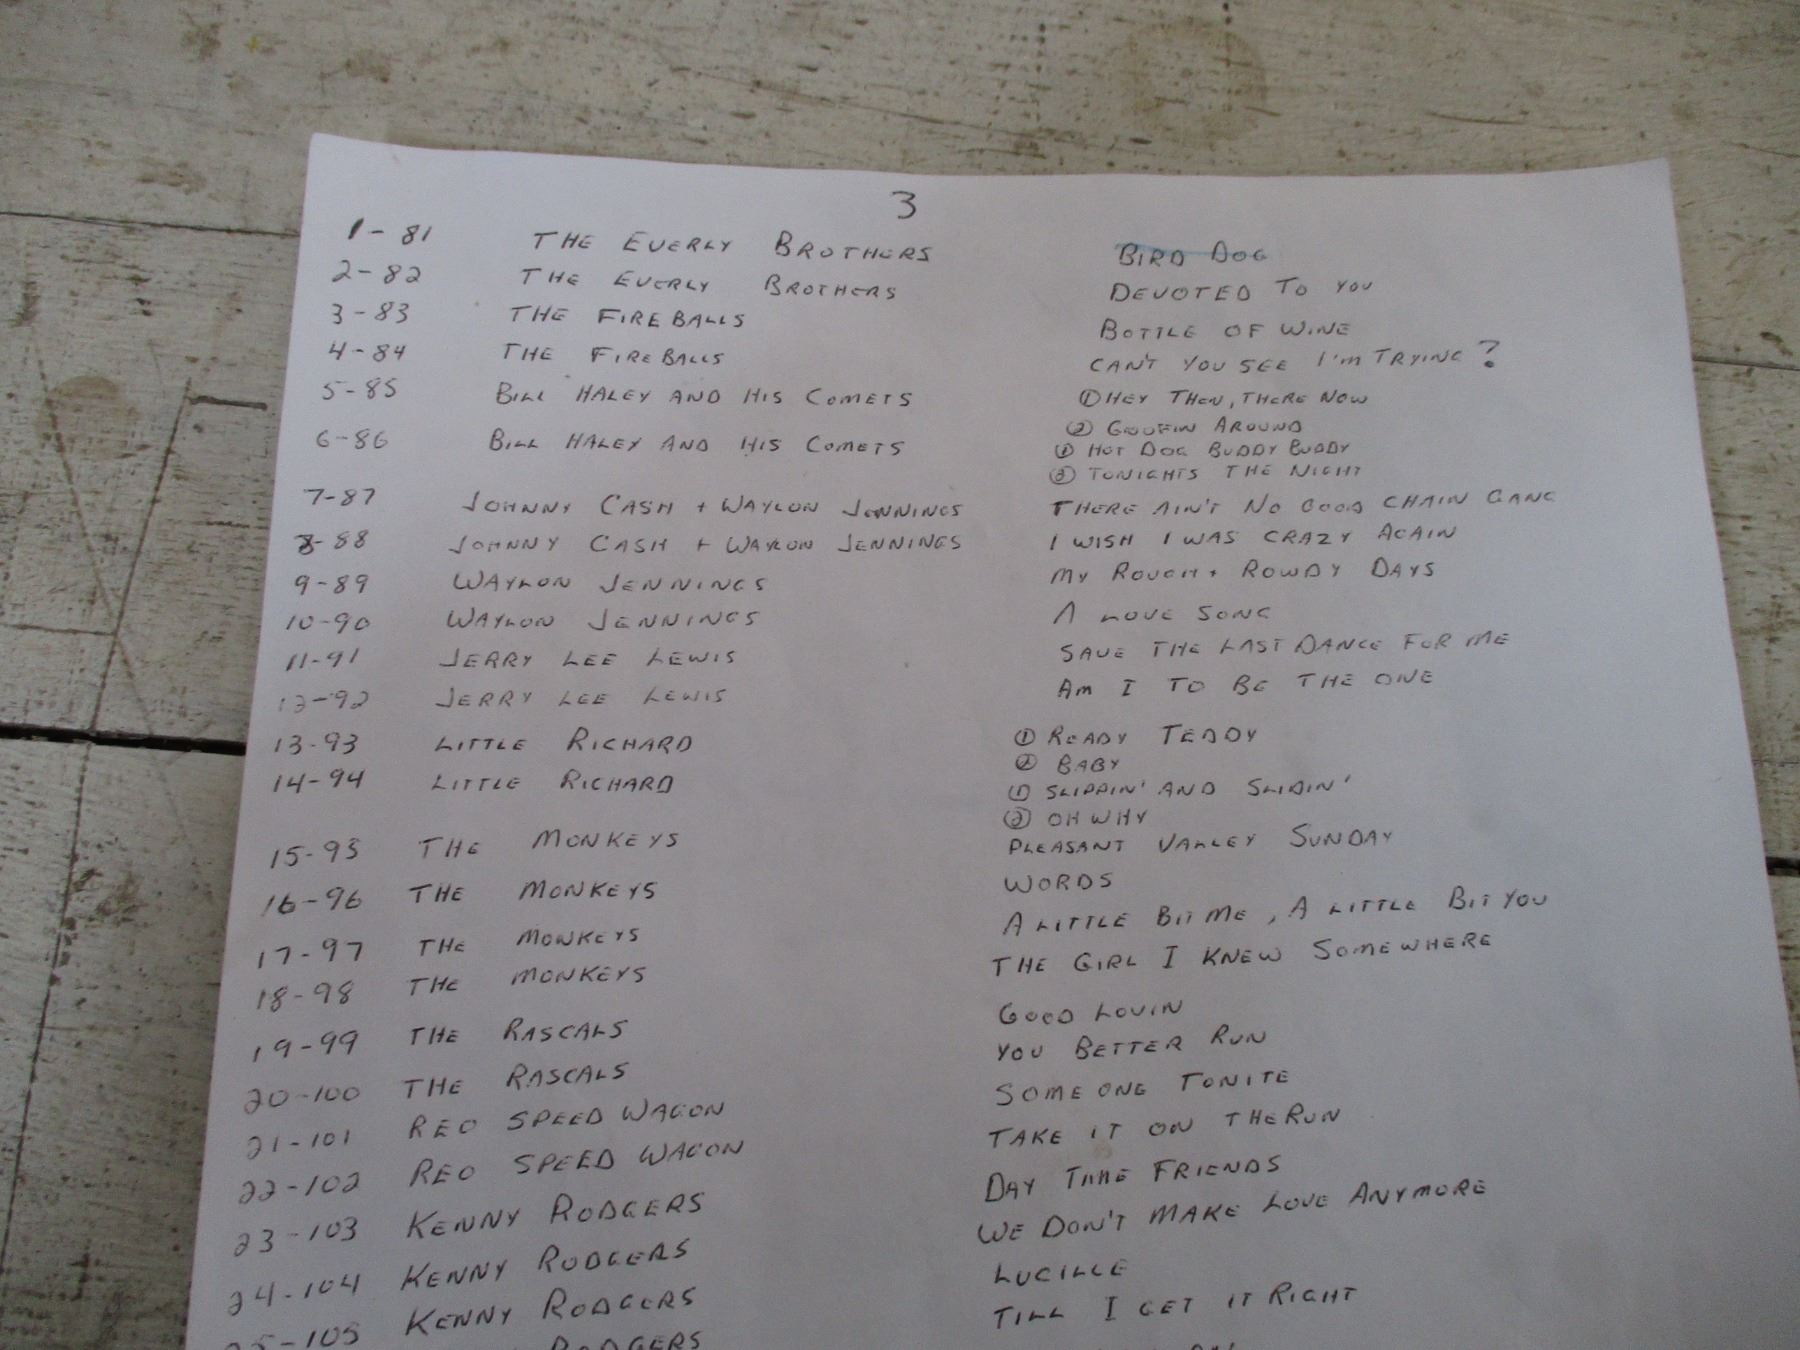 3
1-81 THE EVERLY BROTHERS BIRD DOG
2-82 THE EVERLY BROTHERS DEVOTED TO YOU
3-83 THE FIREBALLS BOTTLE OF WINE
4-84 THE FIREBALLS CAN'T YOU SEE I'M TRYING?
5-85 BILL HALEY AND HIS COMETS ① HEY THEN, THERE NOW
② GOOFIN AROUND
6-86 BILL HALEY AND HIS COMETS ① HOT DOG BUDDY BUDDY
② TONIGHTS THE NIGHT
7-87 JOHNNY CASH + WAYLON JENNINGS THERE AIN'T NO GOOD CHAIN GANG
8-88 JOHNNY CASH + WAYLON JENNINGS I WISH I WAS CRAZY AGAIN
9-89 WAYLON JENNINGS MY ROUGH + ROWDY DAYS
10-90 WAYLON JENNINGS A LOVE SONG
11-91 JERRY LEE LEWIS SAVE THE LAST DANCE FOR ME
12-92 JERRY LEE LEWIS AM I TO BE THE ONE
13-93 LITTLE RICHARD ① READY TEDDY
② BABY
14-94 LITTLE RICHARD ① SLIPPIN' AND SLIDIN'
② OH WHY
15-95 THE MONKEYS PLEASANT VALLEY SUNDAY
16-96 THE MONKEYS WORDS
17-97 THE MONKEYS A LITTLE BIT ME, A LITTLE BIT YOU
18-98 THE MONKEYS THE GIRL I KNEW SOMEWHERE
19-99 THE RASCALS GOOD LOVIN
20-100 THE RASCALS YOU BETTER RUN
21-101 REO SPEED WAGON SOME ONE TONITE
22-102 REO SPEED WAGON TAKE IT ON THE RUN
23-103 KENNY RODGERS DAY TIME FRIENDS
24-104 KENNY RODGERS WE DON'T MAKE LOVE ANYMORE
25-105 KENNY RODGERS LUCILLE
RODGERS TILL I GET IT RIGHT